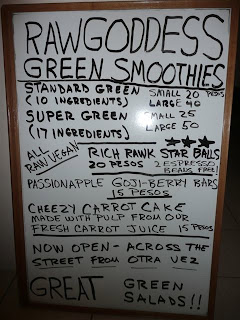 RAWGODDESS
GREEN SMOOTHIES
STANDARD GREEN SMALL 20 PESOS
(10 INGREDIENTS) LARGE 40
SUPER GREEN SMALL 25
(17 INGREDIENTS) LARGE 50
ALL RAW VEGAN
RICH RAWK STAR BALLS
20 PESOS 2 ESPRESSO BEANS, FREE!
PASSIONAPPLE GOJI-BERRY BARS
15 PESOS
CHEEZY CARROT CAKE
MADE WITH PULP FROM OUR
FRESH CARROT JUICE 15 PESOS
NOW OPEN - ACROSS THE
STREET FROM OTRA VEZ
GREAT GREEN
SALADS!!